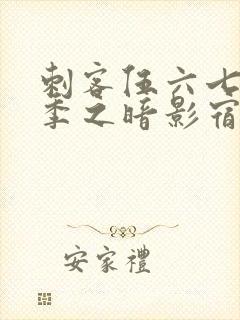 刺客伍六七
季之暗影宿
安家禮